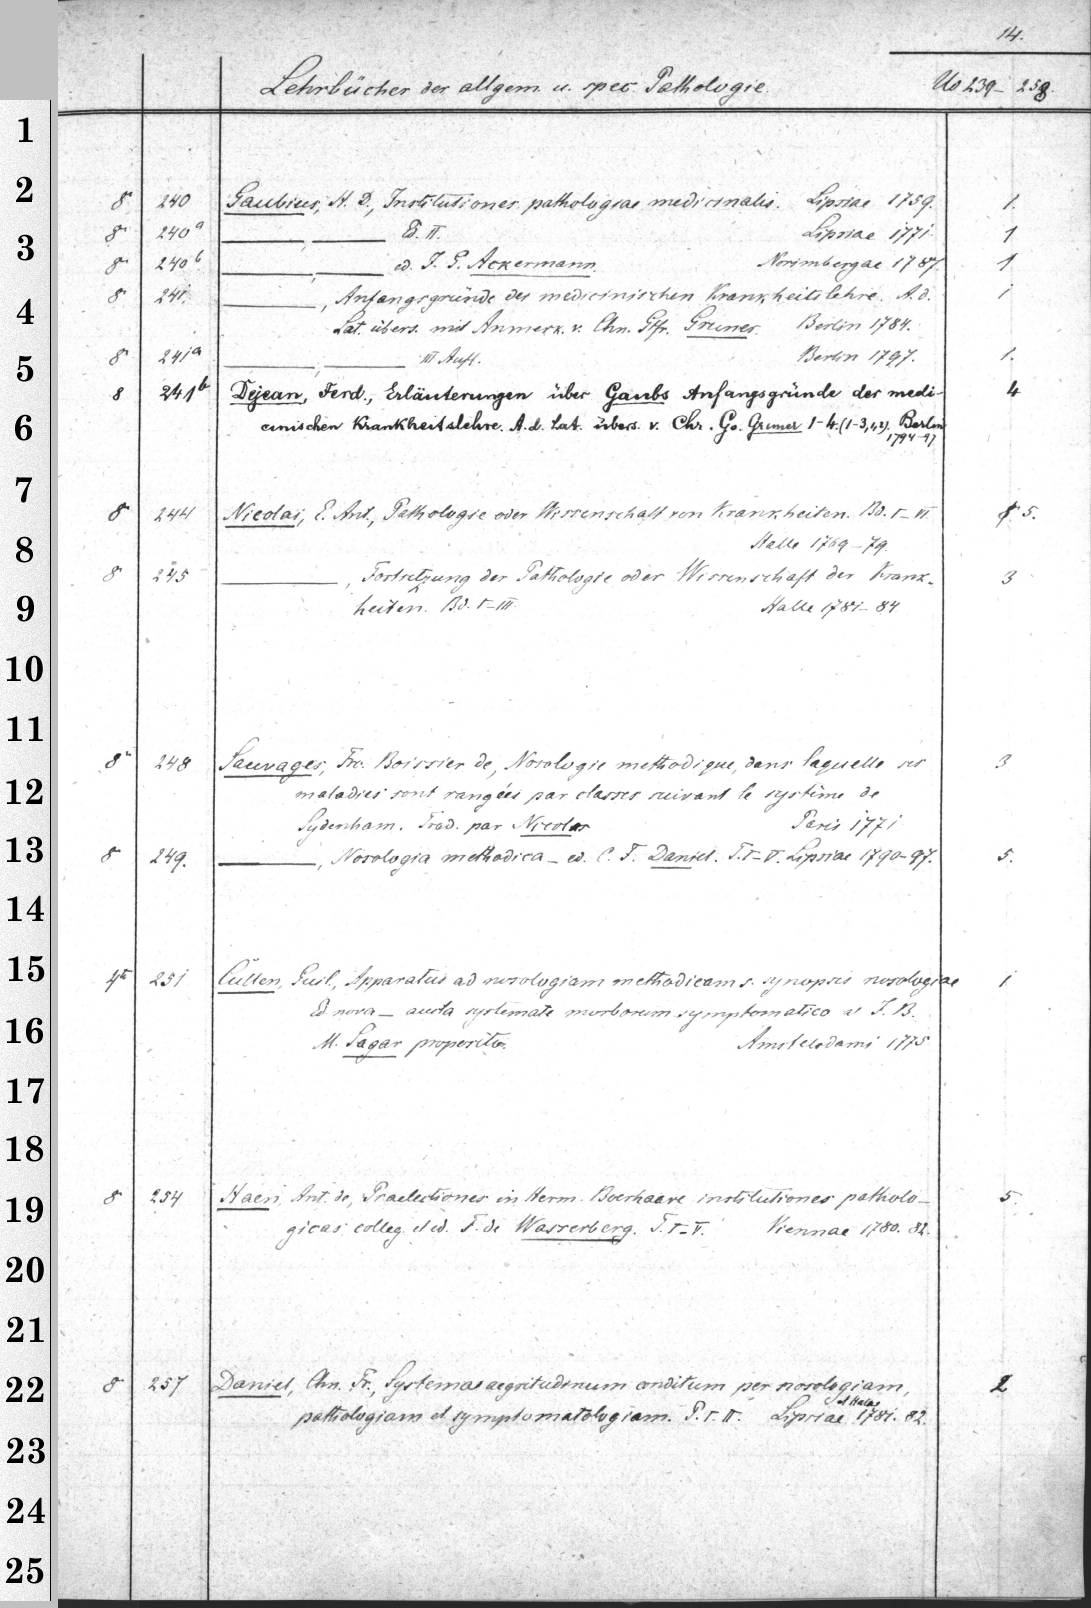 14.
Lehrbücher der allgem. u. spec. Pathologie. Uo 239–258.
8° 240 Gaubius, H. D., Institutiones pathologiae medicinalis. Lipsiae 1759. 1.
8° 240a ———, ——— Ed. II. Lipsiae 1771. 1
8° 240b ———, ——— ed. J. P. Ackermann. Norimbergae 1787. 1
8° 241. ———, Anfangsgründe der medicinischen Krankheitslehre. A. d. 1
Lat. übers. mit Anmerk. v. Chn. Gfr. Gruner. Berlin 1784.
8° 241a ———, ——— III Aufl. Berlin 1797. 1.
8 241b Dejean, Ferd., Erläuterungen über Gaubs Anfangsgründe der medi- 4
cinischen Krankheitslehre. A. d. Lat. übers. v. Chr. Go. Gruner 1-4. (1-3,1,2). Berlin
1794-97
8° 244 Nicolai, E. Ant., Pathologie oder Wissenschaft von Krankheiten. Bd. I–VI 5.
Halle 1769–79.
8 245 ———, Fortsetzung der Pathologie oder Wissenschaft der Krank- 3
heiten. Bd. I–III. Halle 1781–84
8° 248 Sauvages, Frc. Boissier de, Nosologie methodique, dans laquelle ses 3
maladies sont rangées par classes suivant le système de
Sydenham. Trad. par Nicolas Paris 1771
8 249. ———, Nosologia methodica – ed. C. F. Daniel. T. I–V. Lipsiae 1790–97. 5.
4to 251 Cullen, Guil., Apparatus ad nosologiam methodicam s. synopsis nosologiae 1
Ed nova – aucta systemate morborum symptomatico a J. B.
M. Sagar proposito. Amstelodami 1775
8 254 Haen, Ant. de, Praelectiones in Herm. Boerhaave institutiones patholo- 5.
gicas colleg. et ed. F. de Wasserberg. T. I–V. Viennae 1780. 82.
8 257 Daniel, Chn. Fr., Systema aegritudinum conditum per nosologiam, 2
et Halae
pathologiam et symptomatologiam. P. I. II. Lipsiae 1781. 82.
1
2
3
4
5
6
7
8
9
10
11
12
13
14
15
16
17
18
19
20
21
22
23
24
25